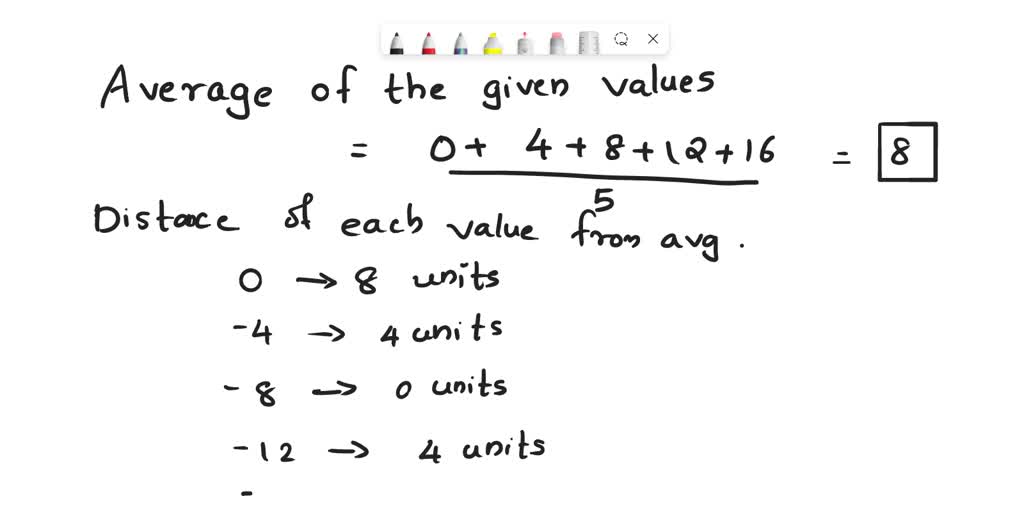 Average of the given values
= 0 + 4 + 8 + 12 + 16 = 8
5
Distace of each value from avg.
0 → 8 units
-4 → 4 units
- 8 → 0 units
-12 → 4 units
-